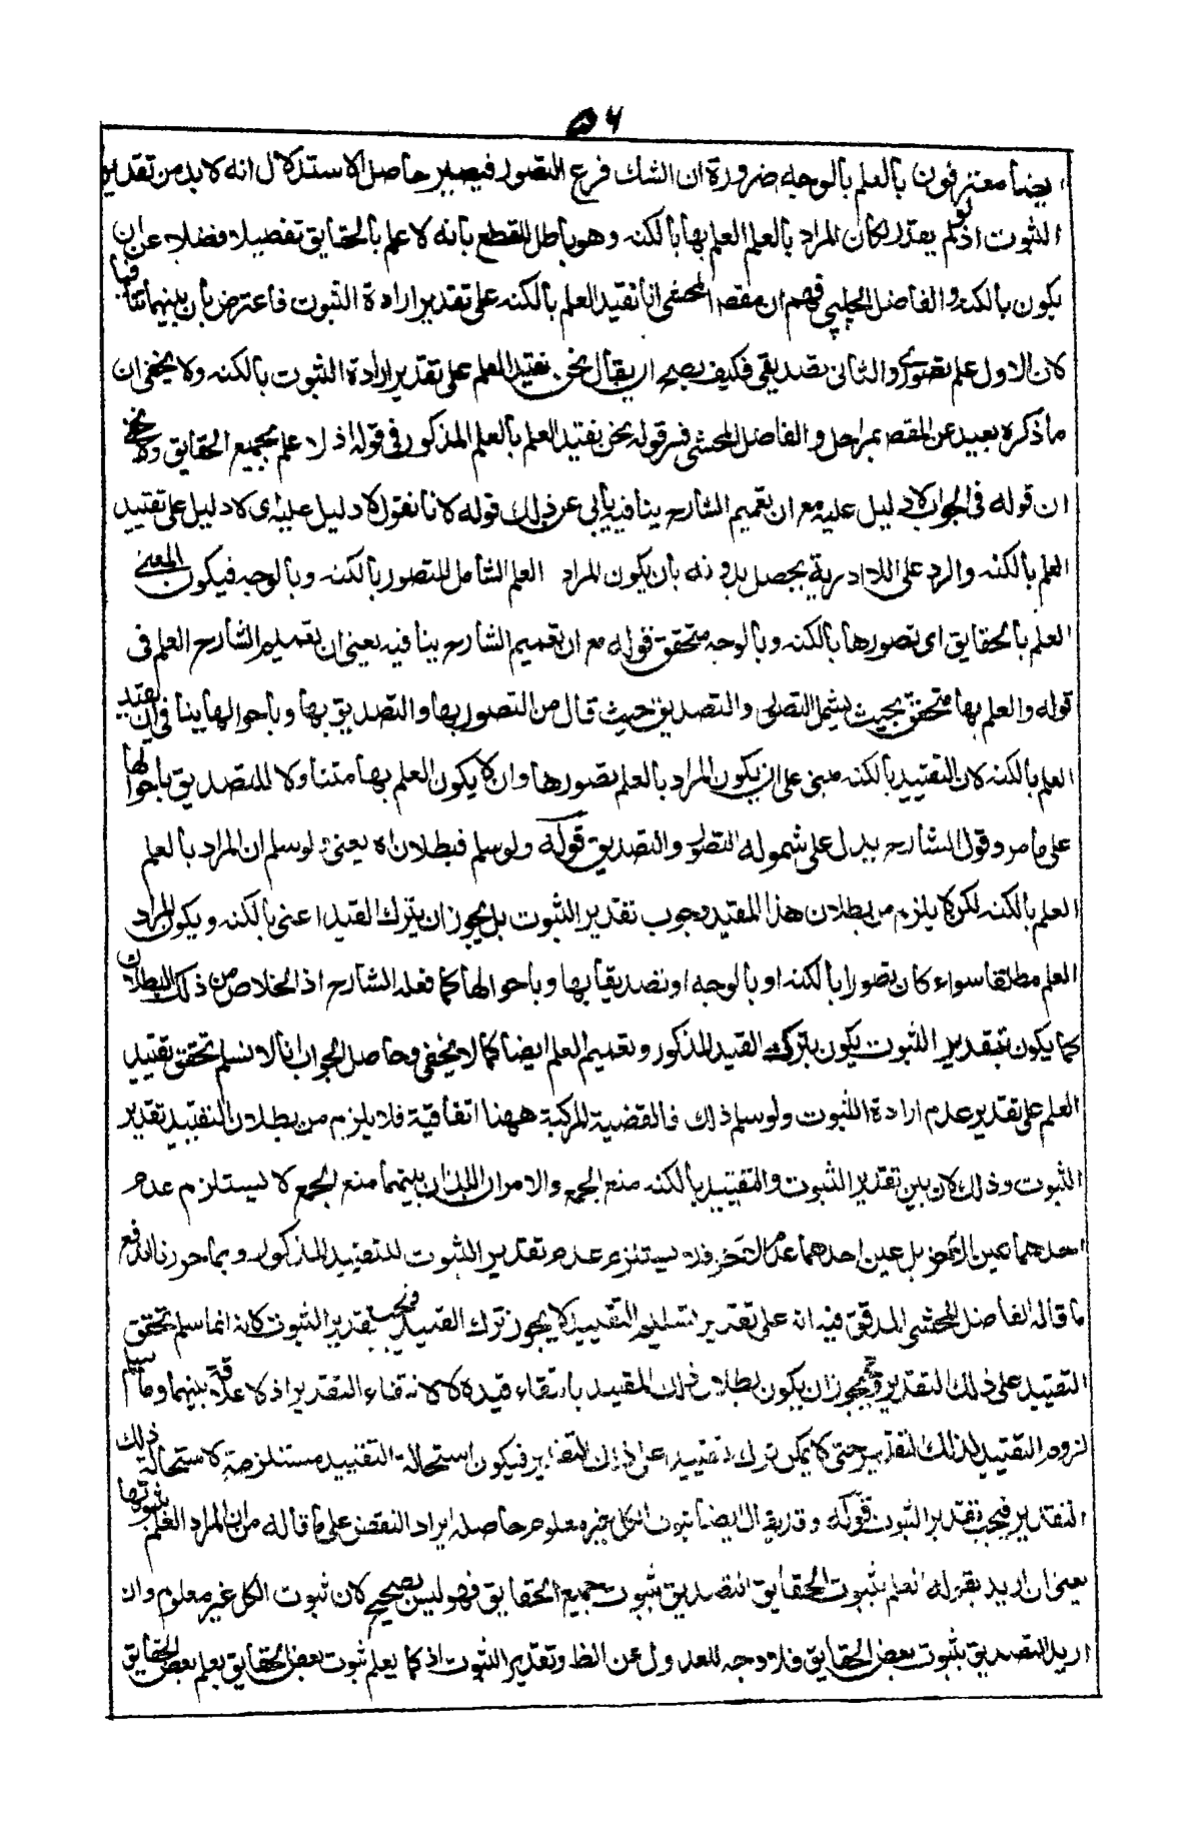 ۵۶
ايضا معترفون بالعلم بالوجه ضرورة ان الشك فرع التصور فيصير حاصل الاستدلال انه لا بد من تقدير
الثبوت اذ لو لم يقدر لكان المراد بالعلم العلم بها بالكنه وهو باطل للقطع بانه لا علم بالحقايق تفصيلا فضلا عن ان
يكون بالكنه والفاضل الچلپي فهم ان مقصد المحشى انا نقيد العلم بالكنه على تقدير ارادة الثبوت فاعترض بان بينهما تنافيا
كان الاول علم تصورى والثانى تصديقى فكيف يصح ان يقال نحن نقيد العلم على تقدير ارادة الثبوت بالكنه ولا يخفى ان
ما ذكره بعيد عن المقصد بمراحل والفاضل المحشى فسر قوله نحن نقيد العلم بالعلم المذكور فى قوله اذ لا علم بجميع الحقايق ولا يخفى
ان قوله فى الجواب لا دليل عليه مع ان تعميم الشارح ينافيه يأبى عن ذلك قوله لانا نقول لا دليل عليه اى لا دليل على تقييد
العلم بالكنه والرد على اللاادرية يحصل بدونه بان يكون المراد العلم الشامل للتصور بالكنه وبالوجه فيكون المعنى
العلم بالحقايق اى تصورها بالكنه وبالوجه متحقق قوله مع ان تعميم الشارح ينافيه يعنى ان تعميم الشارح العلم فى
قوله والعلم بها متحقق بحيث يشمل التصور والتصديق حيث قال من التصور بها والتصديق بها وباحوالها ينافى ان يقيد
العلم بالكنه لان التقييد بالكنه مبنى على ان يكون المراد بالعلم تصورها وان لا يكون العلم بها متناولا للتصديق باحوالها
على ما مر وقول الشارح يدل على شموله التصور والتصديق قوله ولو سلم فبطلان اه يعنى لو سلم ان المراد بالعلم
العلم بالكنه لكن لا يلزم من بطلان هذا المقيد وجوب تقدير الثبوت بل يجوز ان يترك القيد اعنى بالكنه ويكون المراد
العلم مطلقا سواء كان تصورا بالكنه او بالوجه او تصديقا بها وباحوالها كما فعله الشارح اذ الخلاص من ذلك البطلان
كما يكون بتقدير الثبوت يكون بترك القيد المذكور وتعميم العلم ايضا كما لا يخفى وحاصل الجواب انا لا نسلم تحقق تقييد
العلم على تقدير عدم ارادة الثبوت ولو سلم ذلك فالقضية المركبة ههنا اتفاقية فلا يلزم من بطلان التقييد تقدير
الثبوت وذلك لان بين تقدير الثبوت والتقييد بالكنه منع الجمع والامران اللذان بينهما منع الجمع لا يستلزم عدم
احدهما عين الآخر بل عين احدهما عدم الآخر فلا يستلزم عدم تقدير الثبوت للتقييد المذكور وبما حررنا اندفع
ما قاله الفاضل المحشى المدقق فيه انه على تقدير تسليم التقييد لا يجوز ترك القيد فيجب تقدير الثبوت لانه انما سلم تحقق
التقييد على ذلك التقدير فيجوز ان يكون بطلان ذلك المقيد بانتفاء قيده لا لانتفاء التقدير اذ لا علاقة بينهما وما سلم
لزوم التقييد لذلك التقدير حتى لا يمكن ترك التقييد على ذلك التقدير فيكون استحالة التقييد مستلزمة لاستحالة ذلك
التقدير فيجب تقدير الثبوت قوله وقد يقال ايضا ثبوت الكل غير معلوم حاصله ايراد النقض على ما قاله من ان المراد العلم بثبوتها
يعنى ان اريد بقوله العلم بثبوت الحقايق التصديق بثبوت جميع الحقايق فهو ليس بصحيح لان ثبوت الكل غير معلوم وان
اريد التصديق بثبوت بعض الحقايق فلا وجه للعدول عن الظ وتقدير الثبوت اذ كما يعلم ثبوت بعض الحقايق يعلم بعض الحقايق